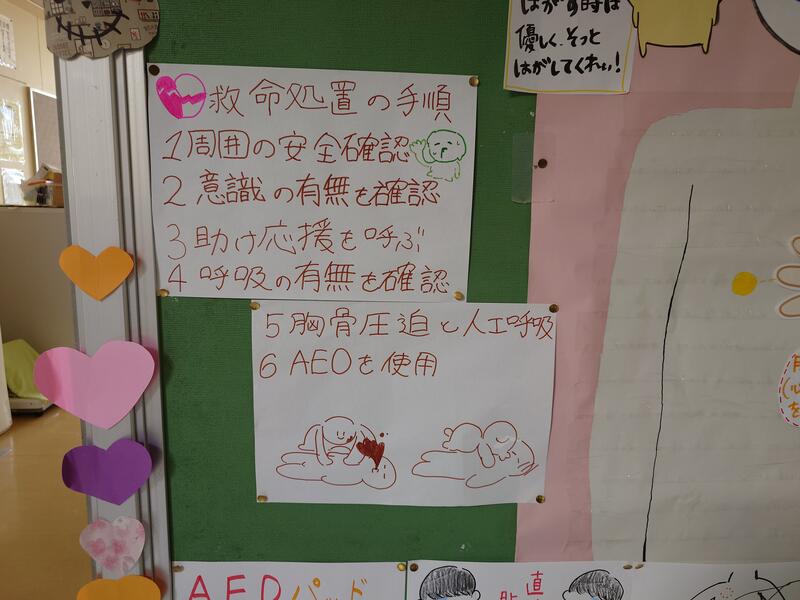 はがす時は
優しく、そっと
はがしてくれぃ!
救命処置の手順
1周囲の安全確認
2意識の有無を確認
3助け応援を呼ぶ
4呼吸の有無を確認
5胸骨圧迫と人工呼吸
6AEOを使用
AEDパッド
直